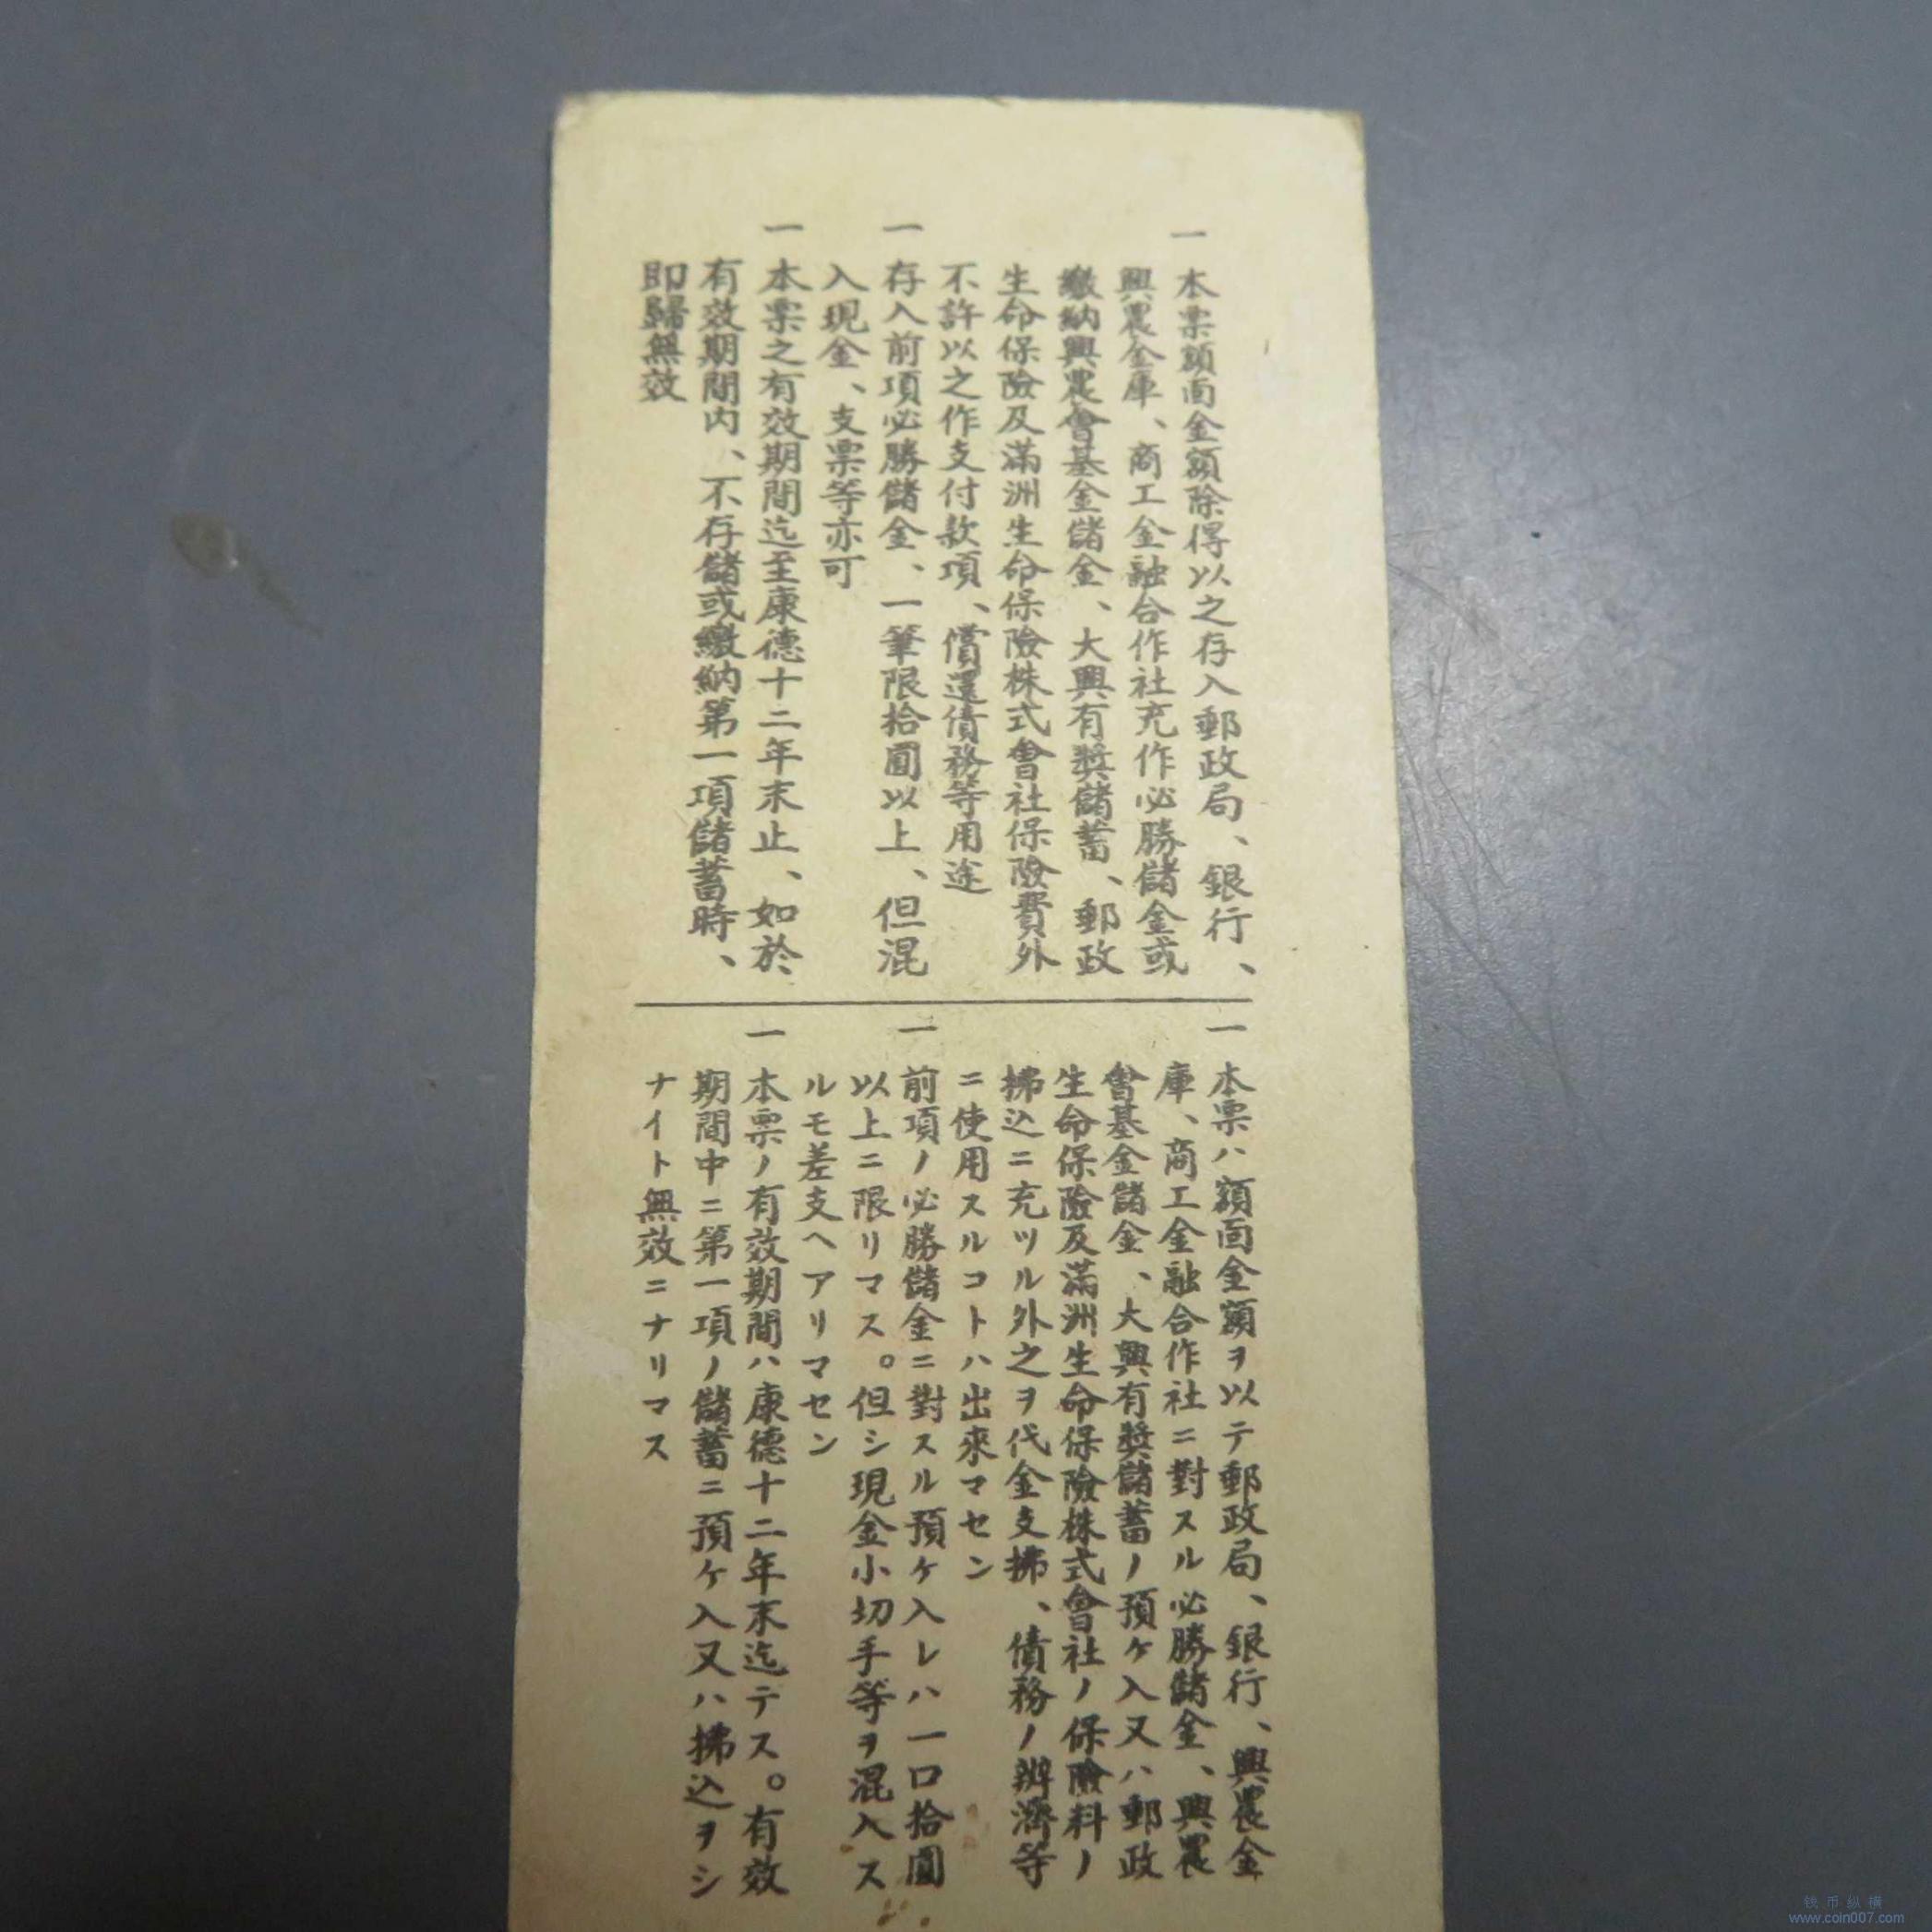 一 本票額面金額除得以之存入郵政局、銀行、
興農金庫、商工金融合作社充作必勝儲金或
繳納興農會基金儲金、大興有獎儲蓄、郵政
生命保險及滿洲生命保險株式會社保險費外
不許以之作支付款項、償還債務等用途
一 存入前項必勝儲金、一筆限拾圓以上、但混
入現金、支票等亦可
一 本票之有效期間迄至康德十二年末止、如於
有效期間內、不存儲或繳納第一項儲蓄時、
即歸無效
一 本票ハ額面金額ヲ以テ郵政局、銀行、興農金
庫、商工金融合作社ニ對スル必勝儲金、興農
會基金儲金、大興有獎儲蓄ノ預ケ入又ハ郵政
生命保險及滿洲生命保險株式會社ノ保險料ノ
拂込ニ充ツル外之ヲ代金支拂、債務ノ辦濟等
ニ使用スルコトハ出來マセン
一 前項ノ必勝儲金ニ對スル預ケ入レハ一口拾圓
以上ニ限リマス。但シ現金小切手等ヲ混入ス
ルモ差支ヘアリマセン
一 本票ノ有效期間ハ康德十二年末迄テス。有效
期間中ニ第一項ノ儲蓄ニ預ケ入又ハ拂込ヲシ
ナイト無效ニナリマス
钱币纵横
www.coin007.com